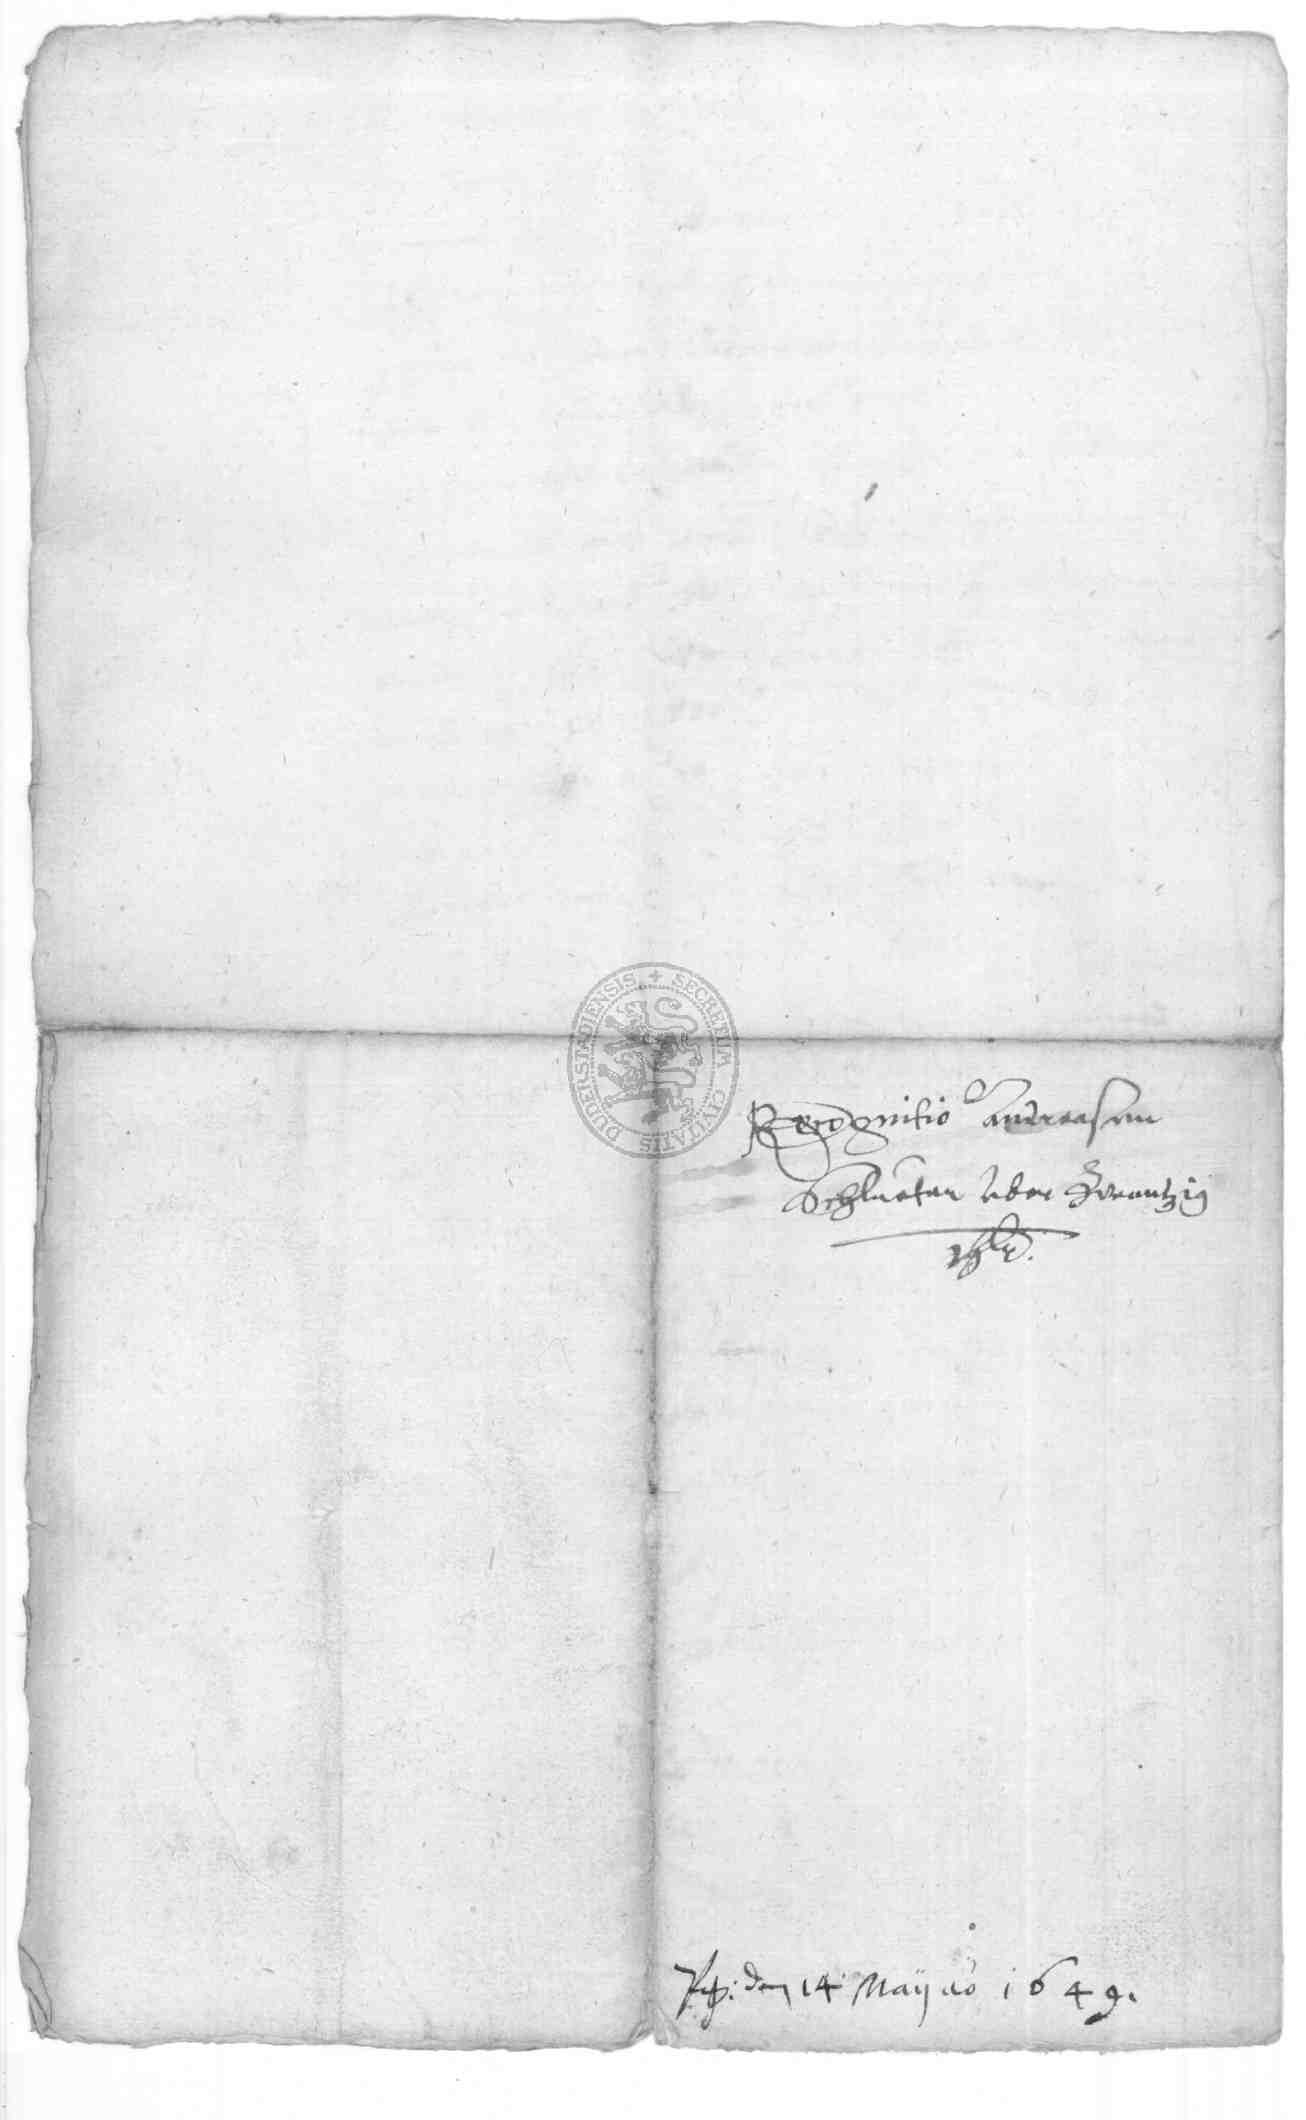 SECRETUM CIVITATIS DUDERSTADIENSIS
Recognitio Andreasen
Schlueter uber Zwantzig
thlr.
den 14 Maÿ ao 1649.